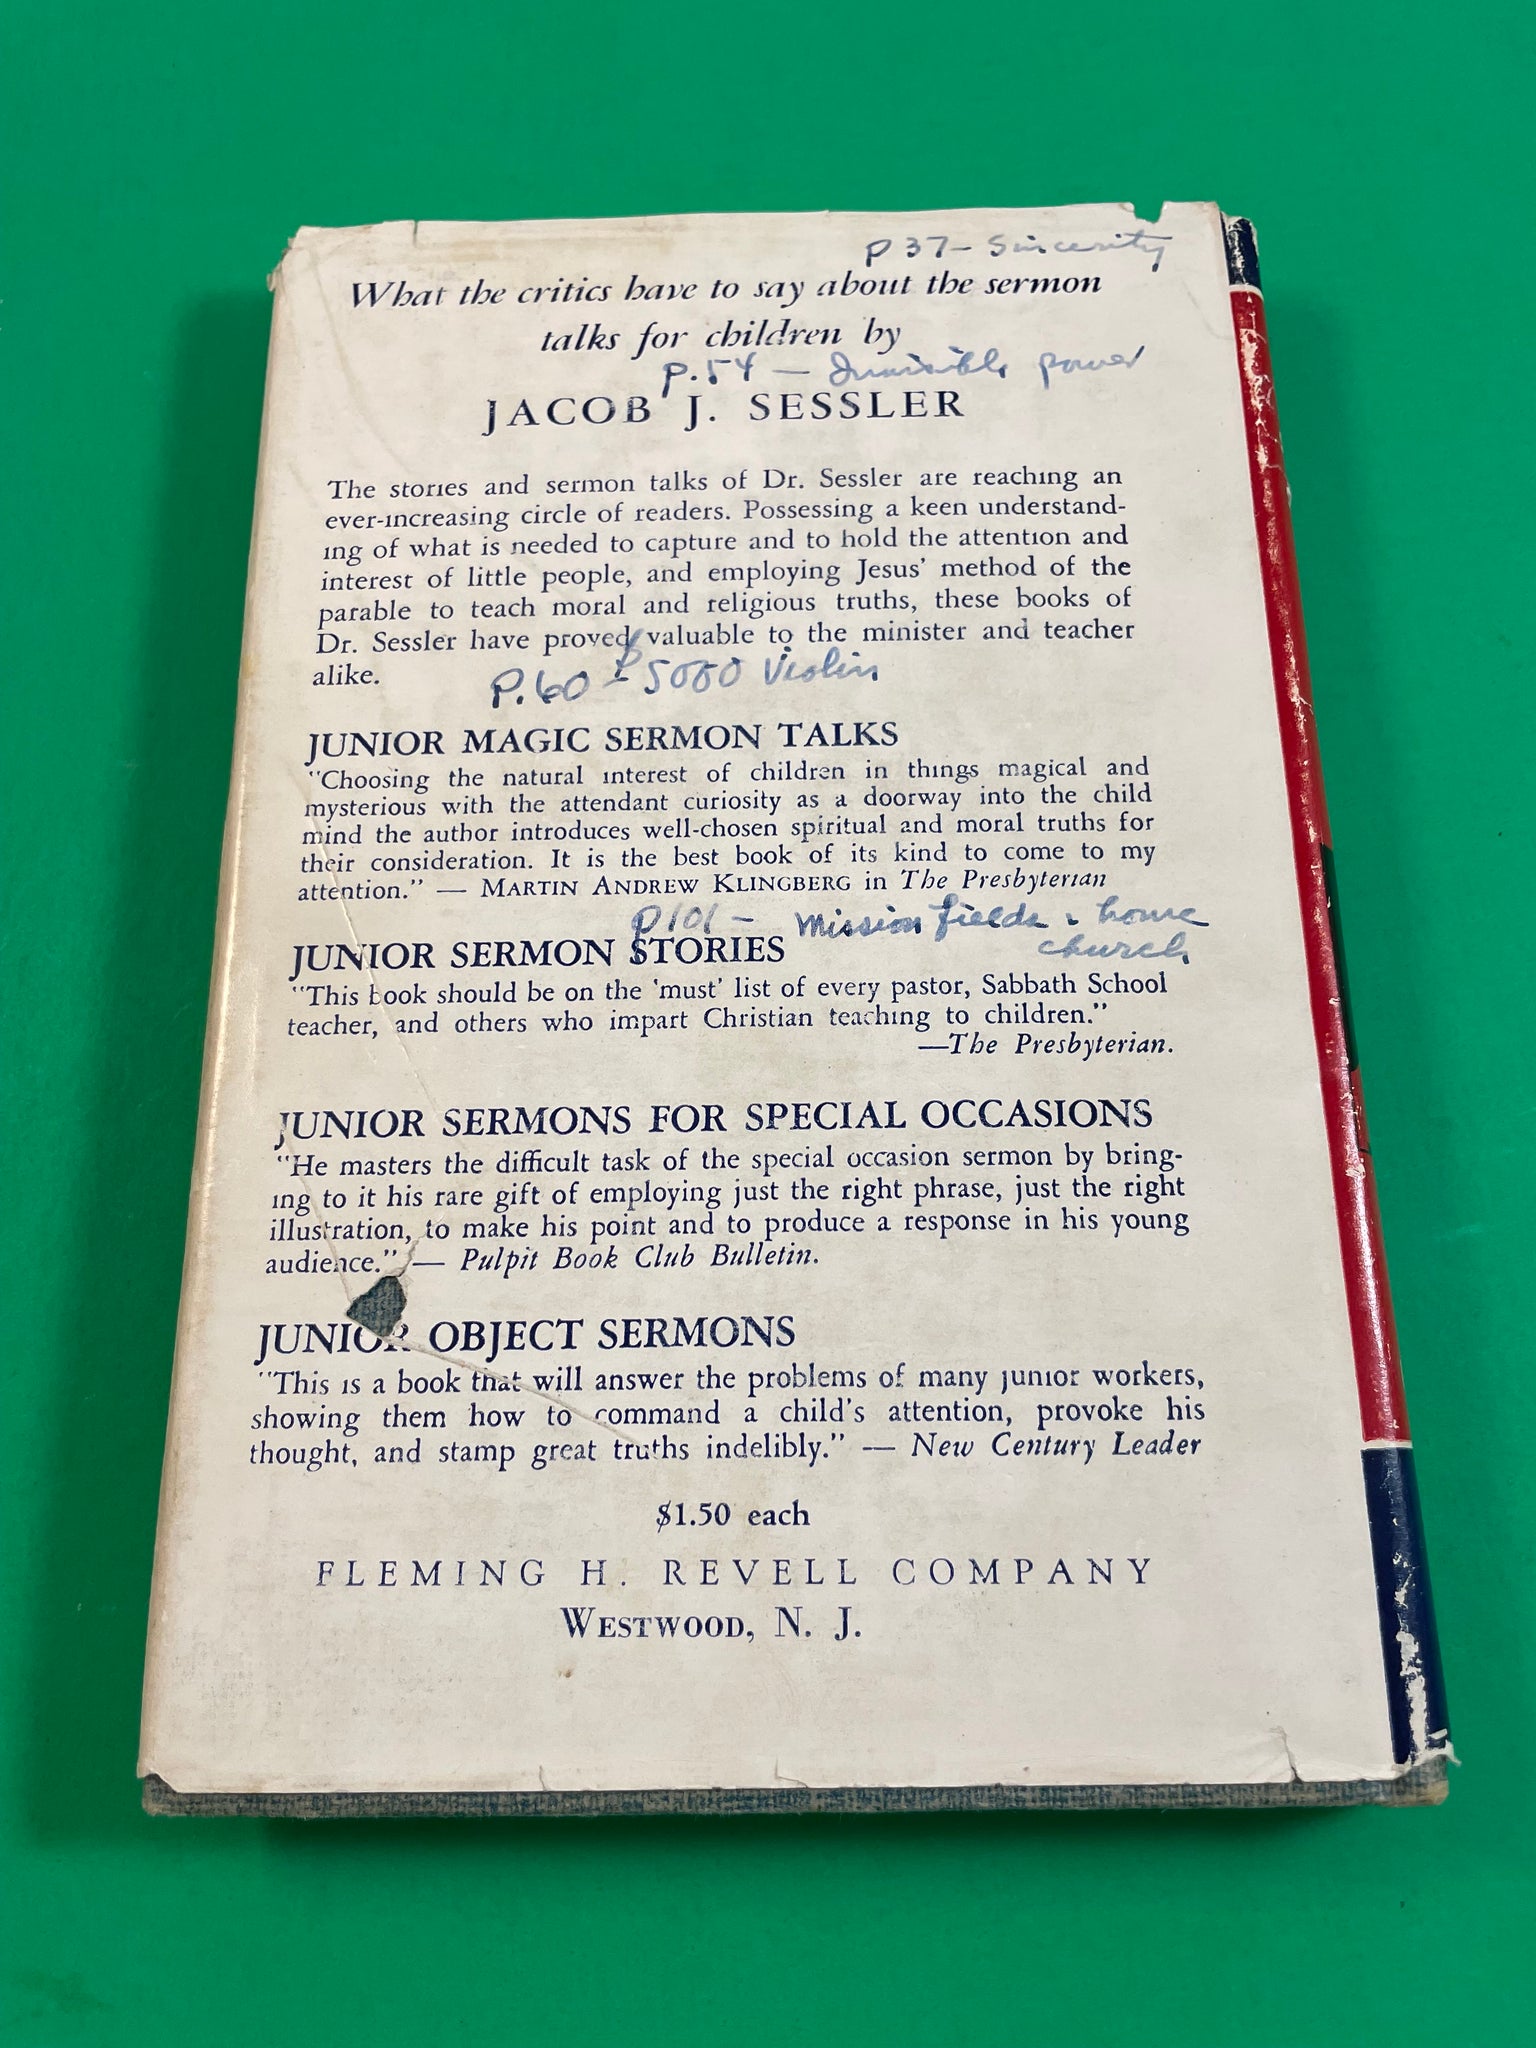 p 37 - Sincerity
What the critics have to say about the sermon
talks for children by
p.54 — Invisible power
JACOB J. SESSLER
The stories and sermon talks of Dr. Sessler are reaching an
ever-increasing circle of readers. Possessing a keen understand-
ing of what is needed to capture and to hold the attention and
interest of little people, and employing Jesus' method of the
parable to teach moral and religious truths, these books of
Dr. Sessler have proved valuable to the minister and teacher
alike.
p.60 - $5000 Violin
JUNIOR MAGIC SERMON TALKS
"Choosing the natural interest of children in things magical and
mysterious with the attendant curiosity as a doorway into the child
mind the author introduces well-chosen spiritual and moral truths for
their consideration. It is the best book of its kind to come to my
attention." — MARTIN ANDREW KLINGBERG in The Presbyterian
p 101 - Mission fields . home
church
JUNIOR SERMON STORIES
"This book should be on the 'must' list of every pastor, Sabbath School
teacher, and others who impart Christian teaching to children."
—The Presbyterian.
JUNIOR SERMONS FOR SPECIAL OCCASIONS
"He masters the difficult task of the special occasion sermon by bring-
ing to it his rare gift of employing just the right phrase, just the right
illustration, to make his point and to produce a response in his young
audience." — Pulpit Book Club Bulletin.
JUNIOR OBJECT SERMONS
"This is a book that will answer the problems of many junior workers,
showing them how to command a child's attention, provoke his
thought, and stamp great truths indelibly." — New Century Leader
$1.50 each
FLEMING H. REVELL COMPANY
WESTWOOD, N. J.